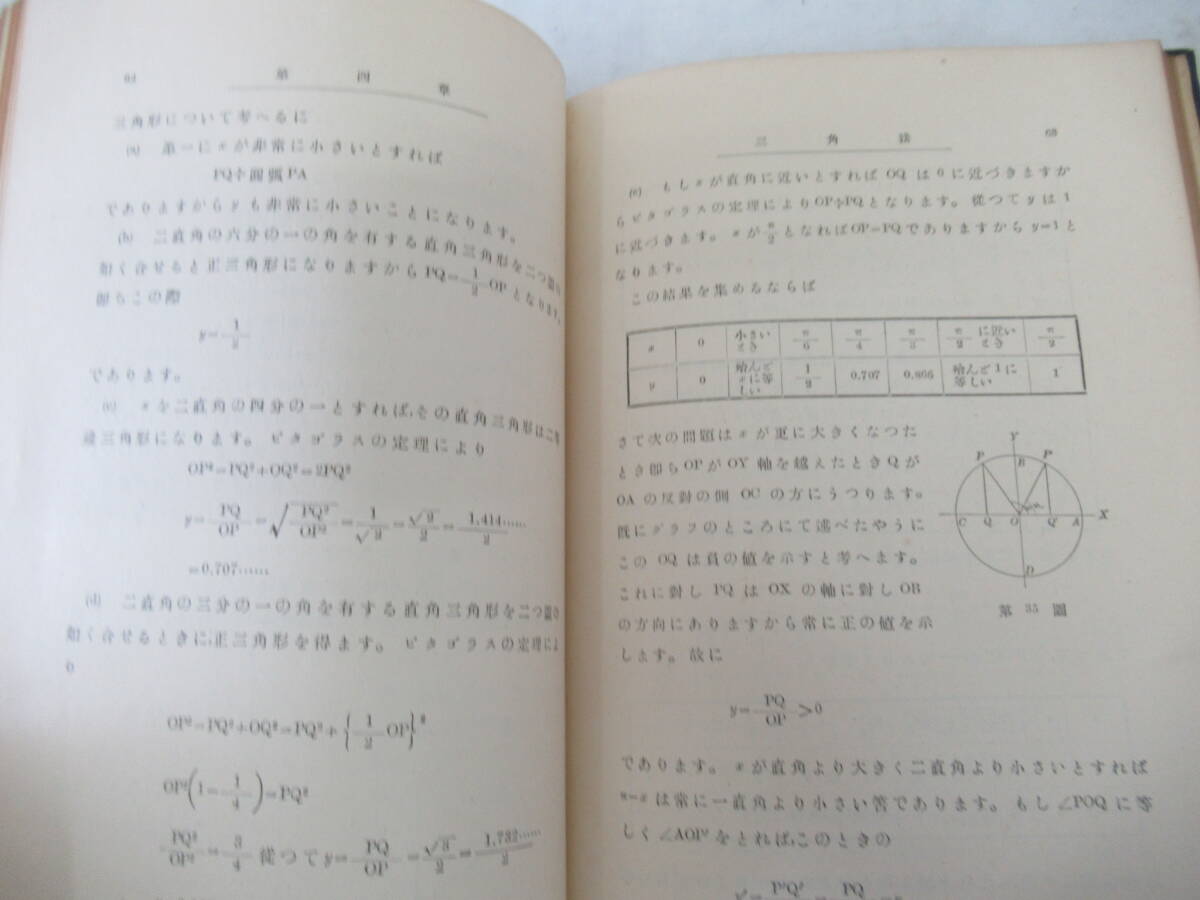 第四章
三角形について考へるに
(a) 第一に x が非常に小さいとすれば
PQ≑圓弧PA
でありますから y も非常に小さいことになります。
(b) 二直角の六分の一の角を有する直角三角形を二つ圖の
如く合せると正三角形になりますから PQ=1/2 OP となります。
即ちこの際
y=1/2
であります。
(c) x を二直角の四分の一とすれば、その直角三角形は二等
邊三角形になります。ピタゴラスの定理により
OP²=PQ²+OQ²=2PQ²
y=PQ/OP=√(PQ²/OP²)=1/√2=√2/2=1.414……/2
=0.707……
(d) 二直角の三分の一の角を有する直角三角形を二つ圖の
如く合せるときに、正三角形を得ます。ピタゴラスの定理によ
り
OP²=PQ²+OQ²=PQ²+{1/2 OP}²
OP²(1-1/4)=PQ²
PQ²/OP²=3/4 從つて y=PQ/OP=√3/2=1.732……/2
三角法 63
(e) もし x が直角に近いとすれば OQ は 0 に近づきますか
らピタゴラスの定理により OP≑PQ となります。從つて y は 1
に近づきます。x が π/2 となれば OP=PQ でありますから y=1 と
なります。
この結果を集めるならば
x 0 小さいとき π/6 π/4 π/3 π/2 に近いとき π/2
y 0 殆んど x に等しい 1/2 0.707 0.866 殆んど 1 に等しい 1
さて次の問題は x が更に大きくなつた
とき即ち OP が OY 軸を越えたとき Q が
OA の反對の側 OC の方にうつります。
既にグラフのところにて述べたやうに
この OQ は負の値を示すと考へます。
これに對し PQ は OX の軸に對し OB
の方向にありますから常に正の値を示
します。故に
Y
P B P'
C Q O Q' A X
D
第 35 圖
y=PQ/OP>0
であります。x が直角より大きく二直角より小さいとすれば
π-x は常に一直角より小さい筈であります。もし ∠POQ に等
しく ∠AOP' をとれば、このときの
P'Q' PQ